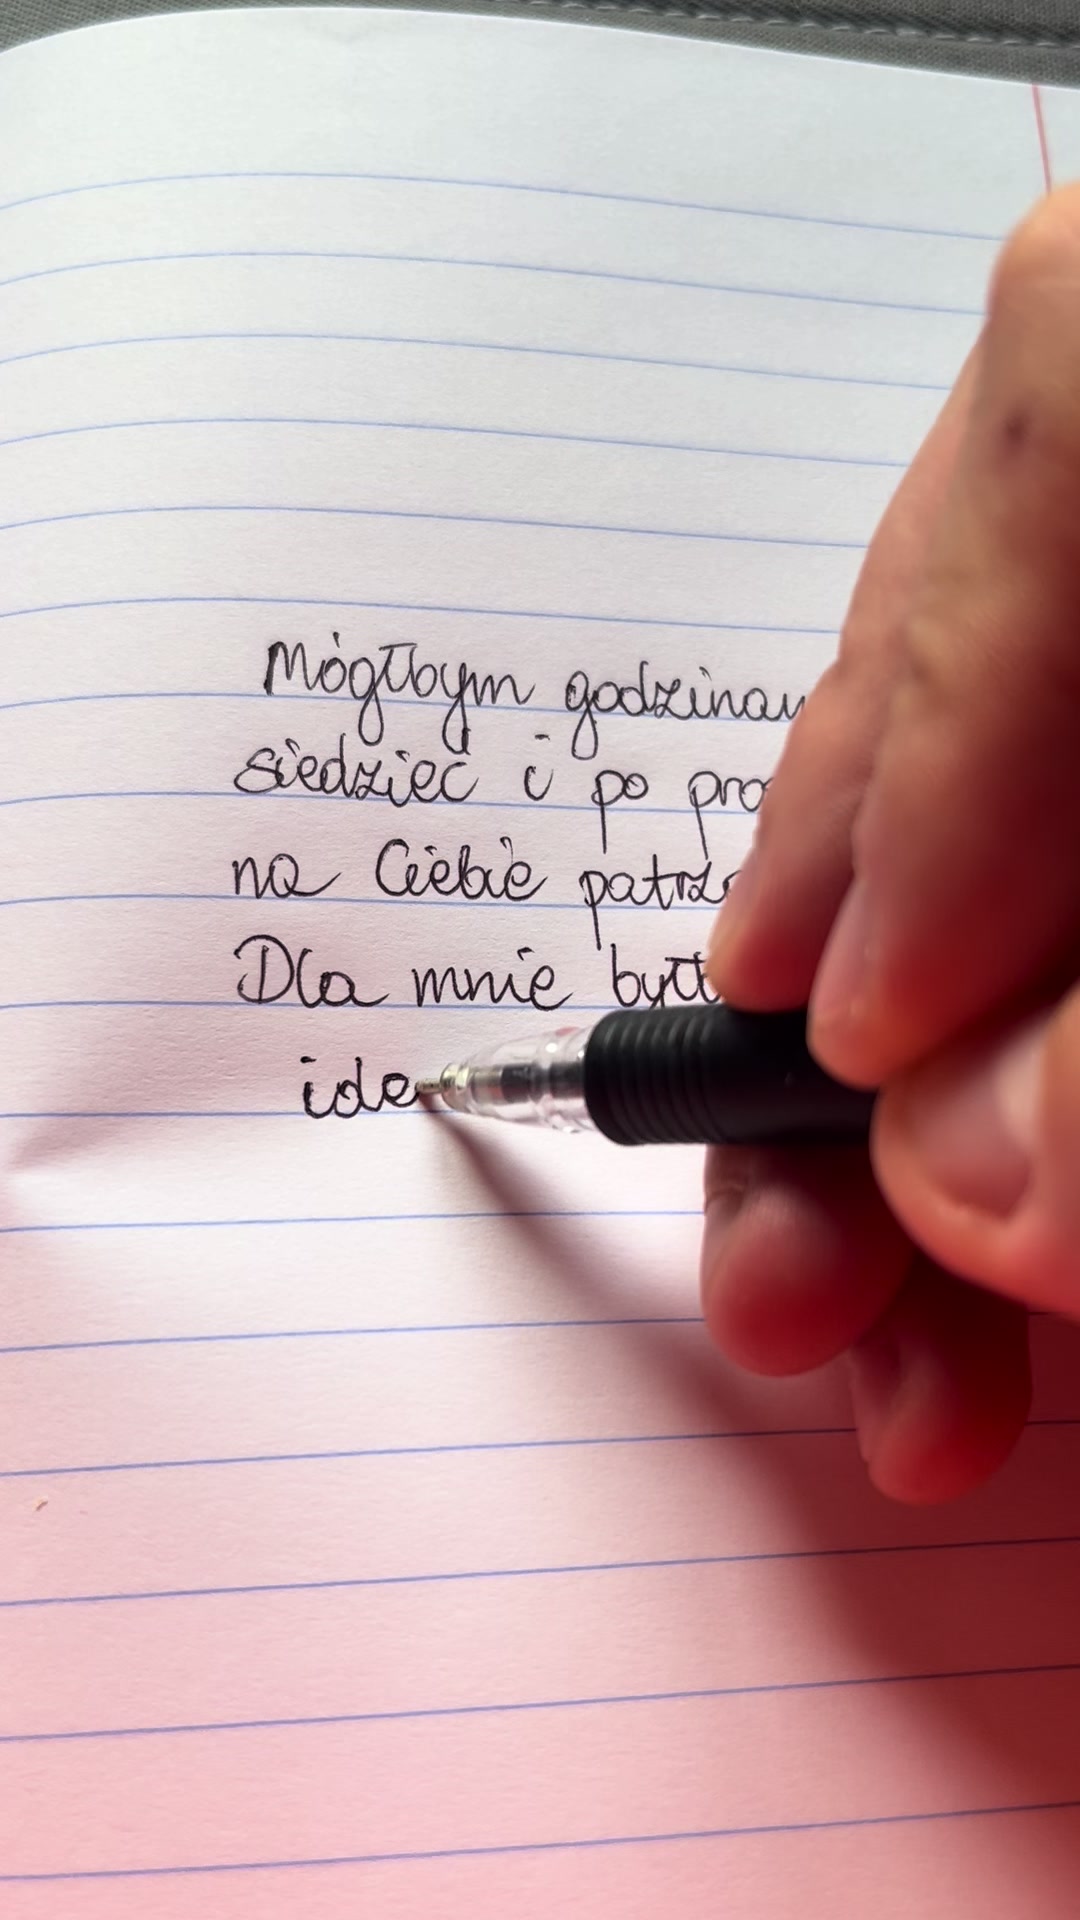 Mógłbym godzinam
siedzieć i po pro
na Ciebie patrz
Dla mnie był
ide